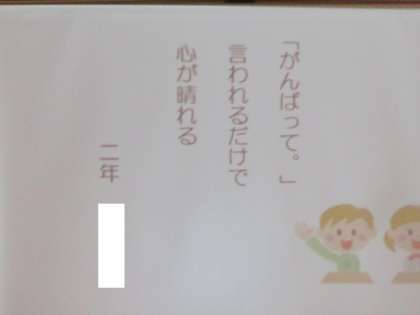 「がんばって。」
言われるだけで
心が晴れる
二年